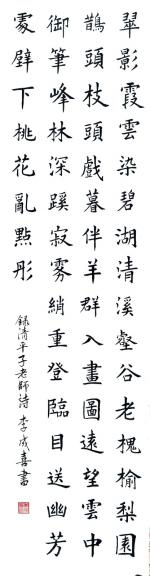 翠影霞雲染碧湖清溪壑谷老槐榆梨園
鵲頭枝頭戲暮伴羊群入畫圖遠望雲中
御筆峰林深蹊寂雾綃重登臨目送幽芳
處壁下桃花亂點彤
錄清平子老師詩 李成喜書